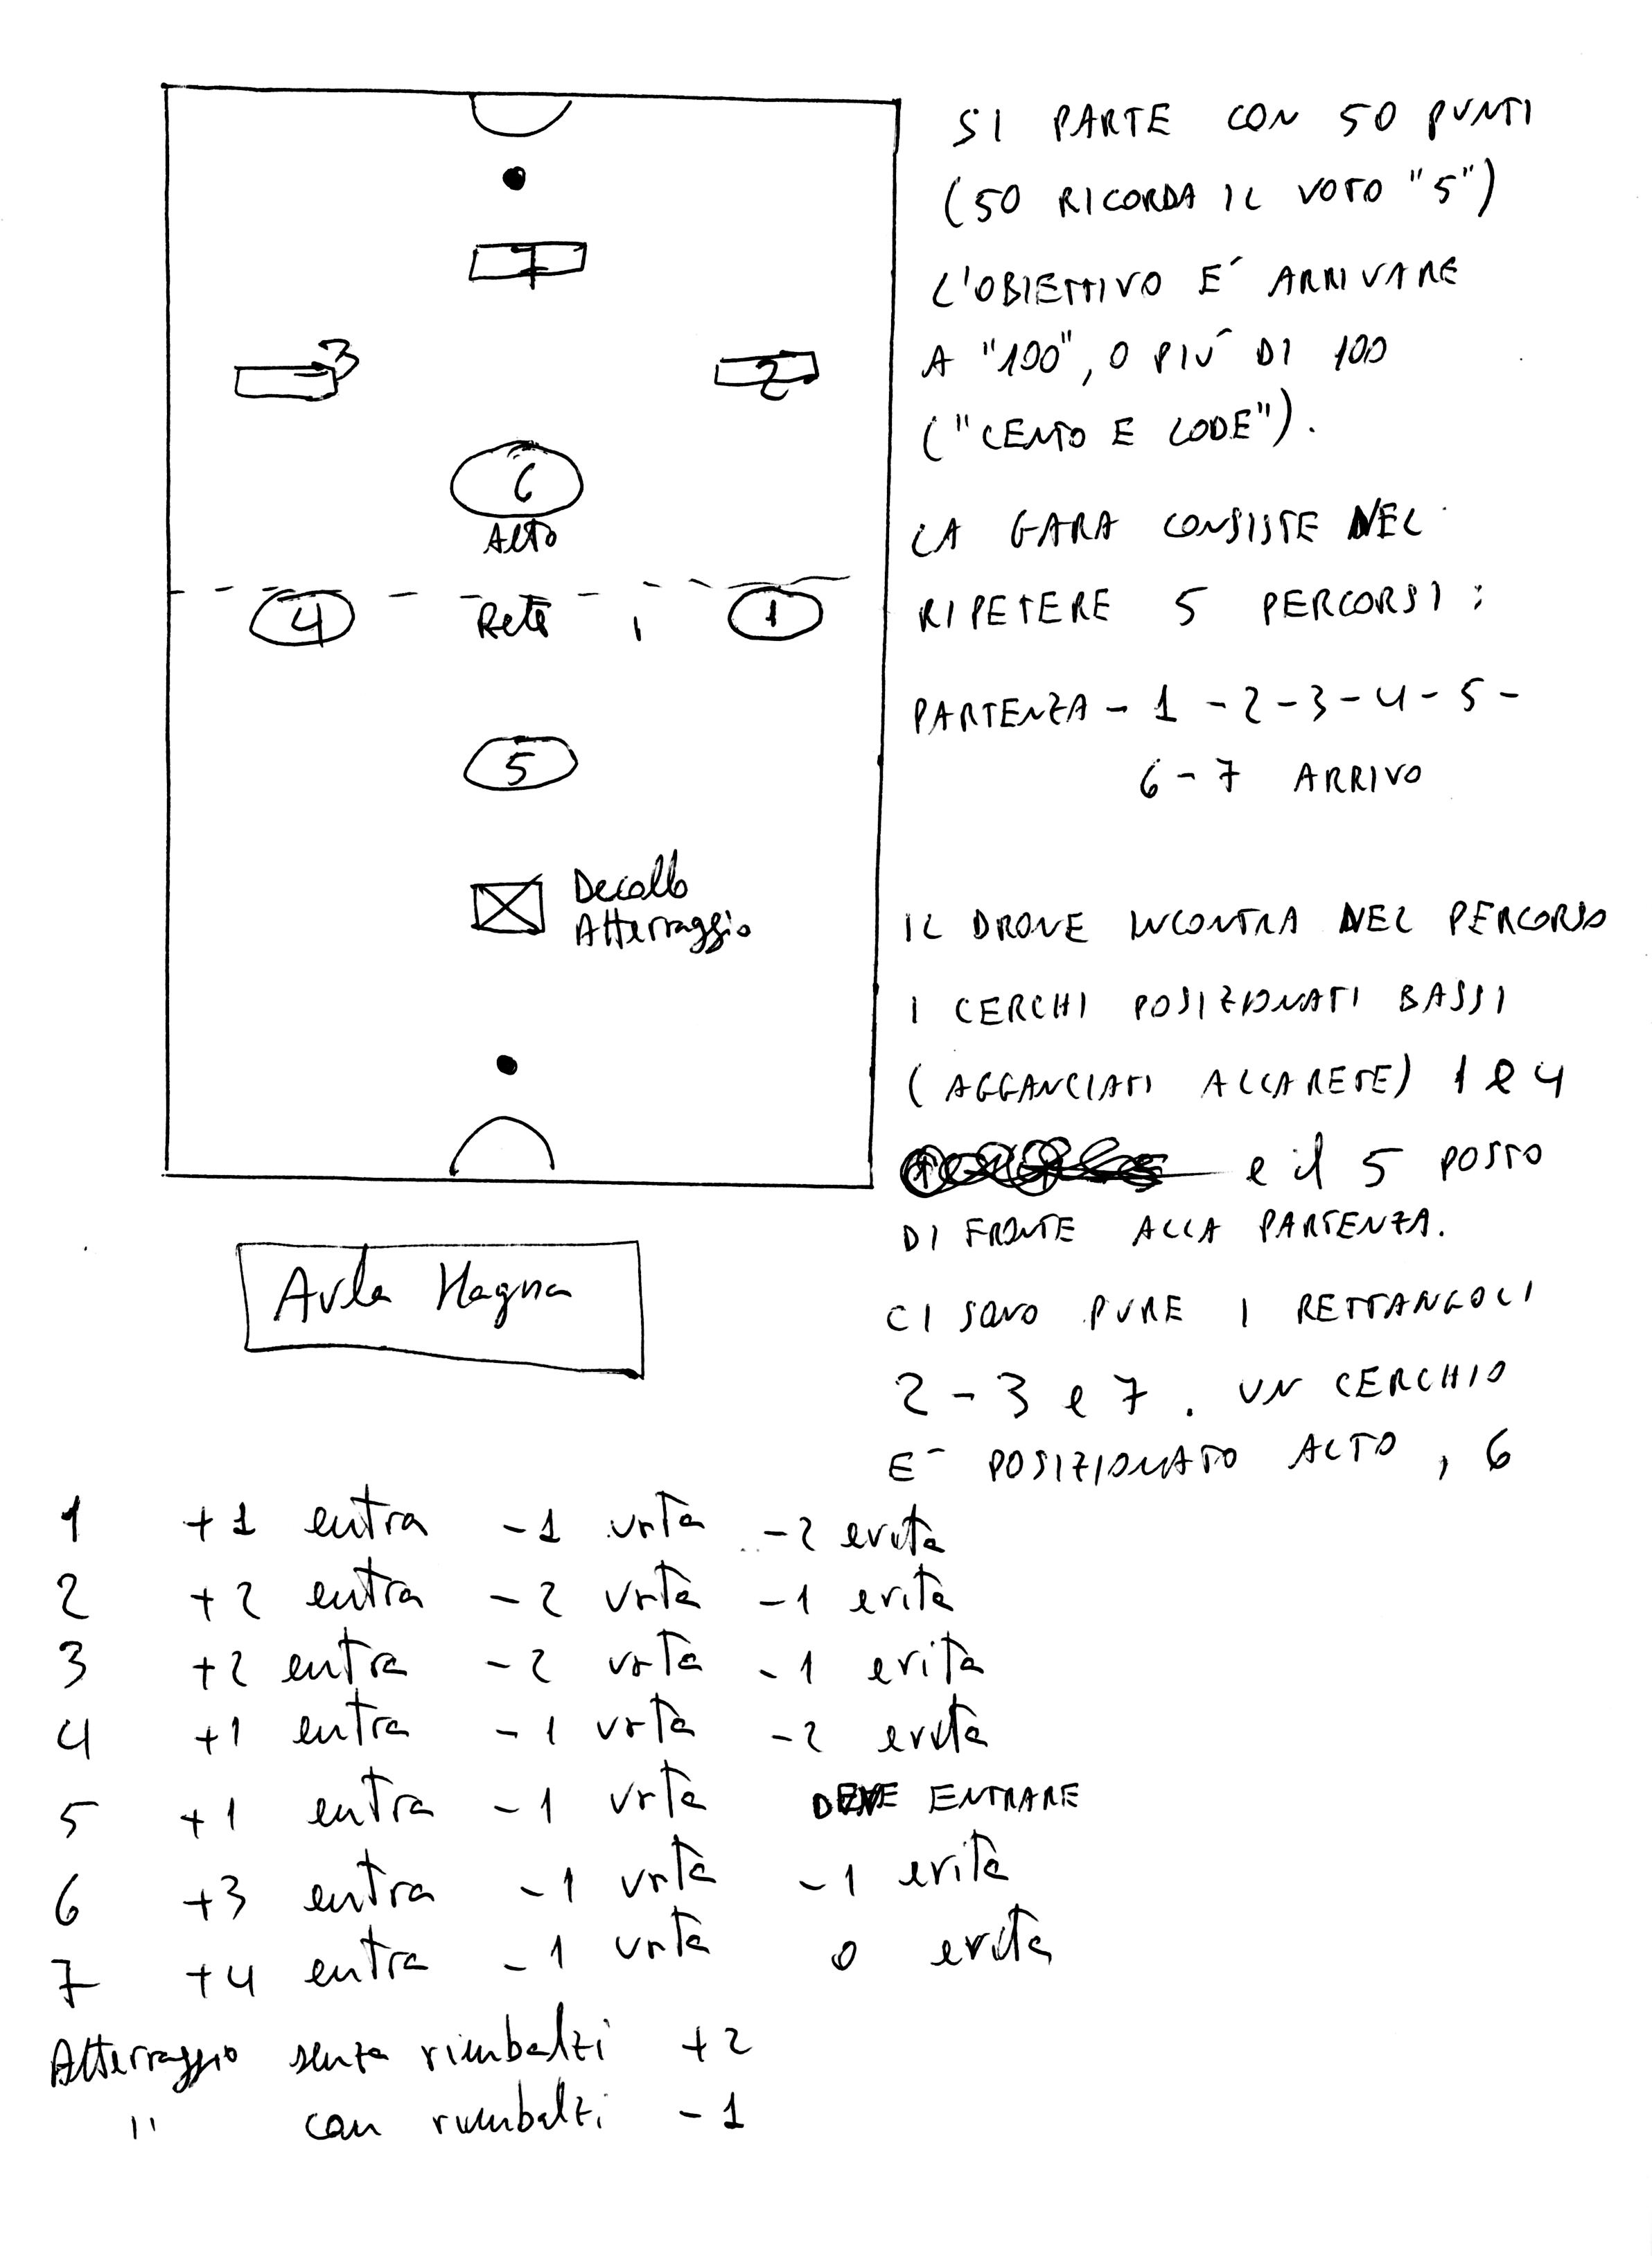 7
3
2
6
ALTO
4
Rete
1
5
Decollo
Atterraggio
Aula Magna
SI PARTE CON 50 PUNTI
(50 RICORDA IL VOTO "5")
L'OBIETTIVO E' ARRIVARE
A "100", O PIU' DI 100
("CENTO E LODE").
LA GARA CONSISTE NEL
RIPETERE 5 PERCORSI:
PARTENZA - 1 - 2 - 3 - 4 - 5 -
6 - 7 ARRIVO
IL DRONE INCONTRA NEL PERCORSO
I CERCHI POSIZIONATI BASSI
(AGGANCIATI ALLA RETE) 1 e 4
e il 5 POSTO
DI FRONTE ALLA PARTENZA.
CI SONO PURE I RETTANGOLI
2 - 3 e 7. UN CERCHIO
E' POSIZIONATO ALTO, 6
1 +1 entra -1 urta -2 evita
2 +2 entra -2 urta -1 evita
3 +2 entra -2 urta -1 evita
4 +1 entra -1 urta -2 evita
5 +1 entra -1 urta DEVE ENTRARE
6 +3 entra -1 urta -1 evita
7 +4 entra -1 urta 0 evita
Atterraggio senza rimbalzi +2
" con rimbalzi -1